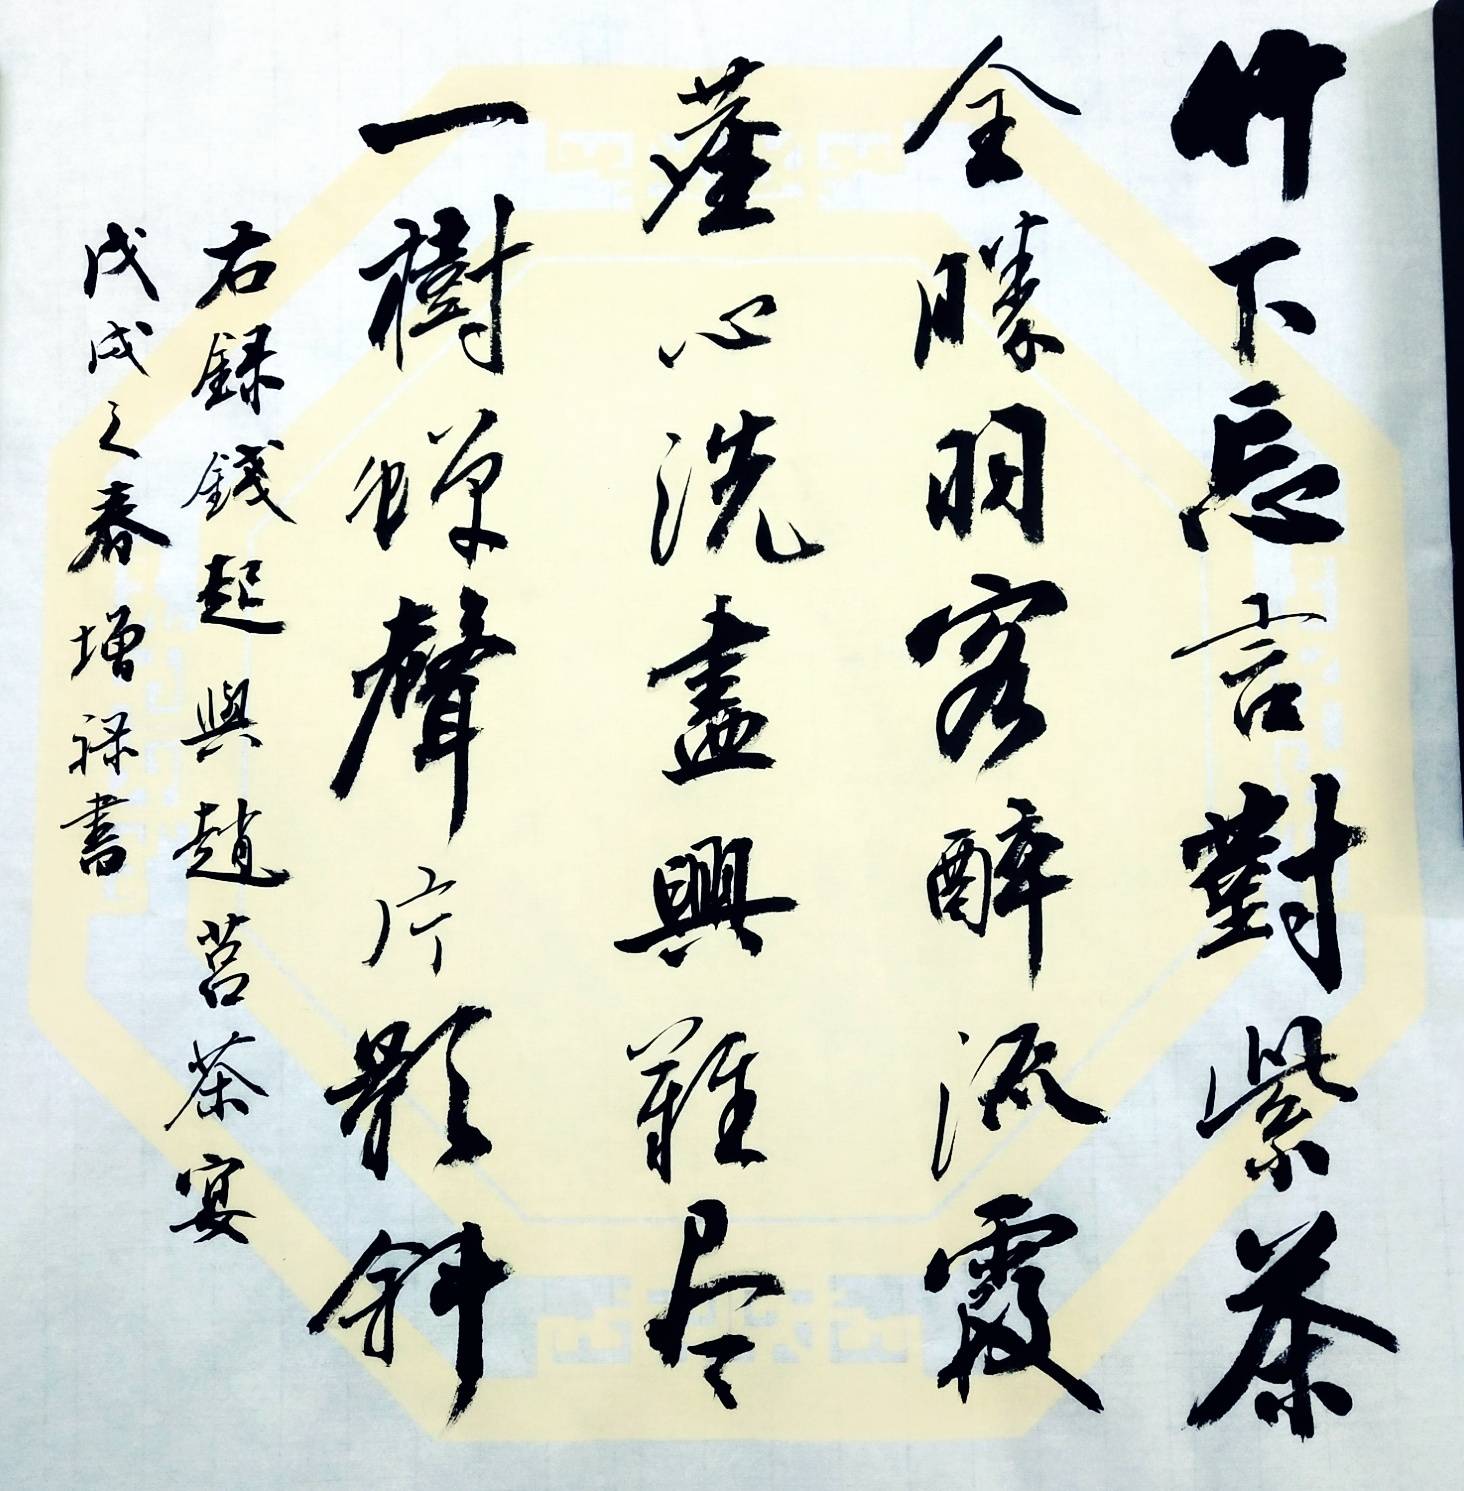 竹下忘言對紫茶
全勝羽客醉流霞
塵心洗盡興難尽
一樹蟬聲片影斜
右録錢起與趙莒茶宴
戊戌之春增禄書